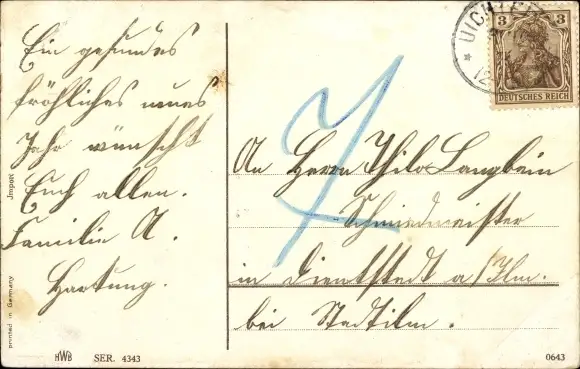 Ein gesundes
fröhliches neues
Jahr wünscht
Euch allen.
Familie A.
Hartung.
Import
printed in Germany
HWB SER. 4343
7
UICHTER
12
3 3
DEUTSCHES REICH
An Herrn Thilo Langbein
Schmiedmeister
in Dienstedt a/Ilm.
bei Stadtilm.
0643